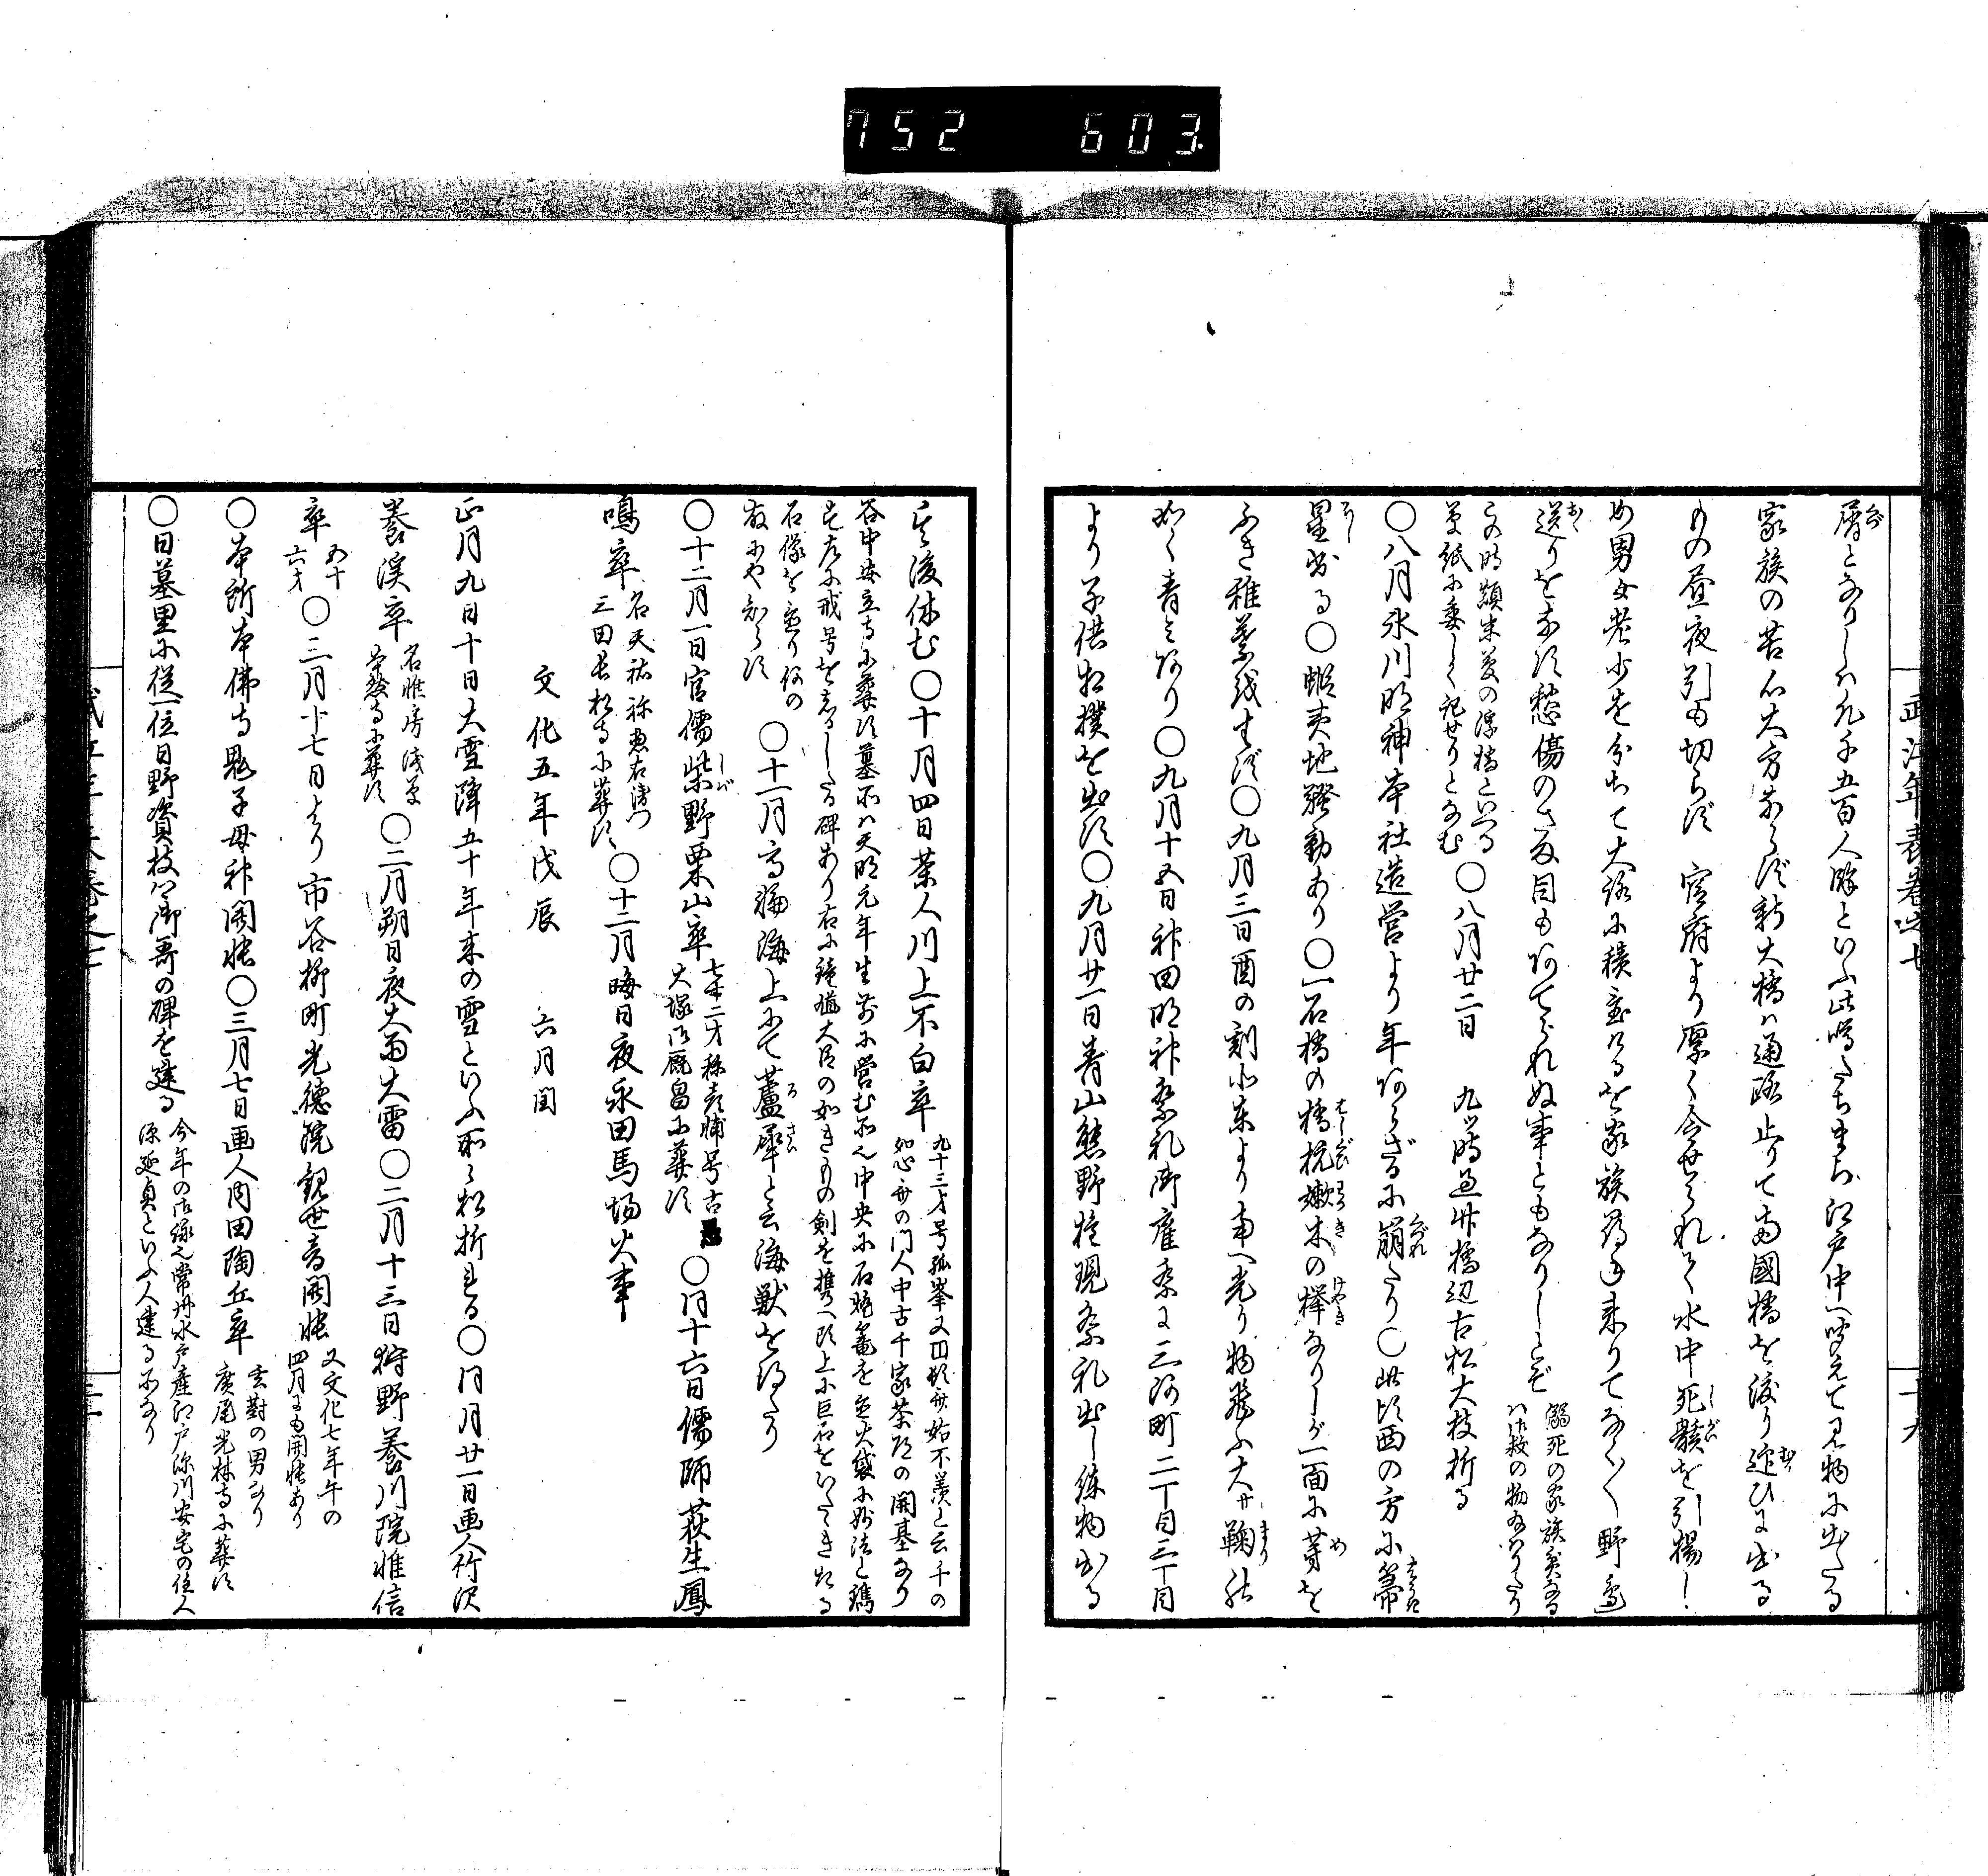 752 603
武江年表巻之七
屑となりしハ凡千五百人餘といふ此噂たちまち江戸中へ聞えて見物に出たる
家族の苦心大方ならず新大橋ハ通路止りて両國橋を渡り迎ひに出る
もの昼夜引も切らず 官府より厚く令せられて水中死骸を引揚し
め男女老少を分ちて大路に積置けるを家族尋ね来りてなく〳〵野邊
送りをなす愁傷のさま目もあてられぬ事ともなりしとぞ 溺死の家族貧なる
ハ御救の物を給ハりたり
この時
草紙に委しく記せりとなむ 〇八月廿二日 九時過 橋辺古松大枝折る
〇八月氷川明神本社造営より年あらざるに崩たり〇此頃西の方に箒
星出る〇蝦夷地騒動あり〇一石橋の橋杭嫩木の欅なりしが一面に芽を
ふき稚葉を生ず〇九月三日酉の刻北東より南へ光り物飛ふ大サ鞠の
如く青みあり〇九月十五日神田明神祭礼御雇祭に三河町二丁目三丁目
より子供相撲を出す〇九月廿一日青山熊野権現祭礼出し練物出る
其後休む〇十月四日茶人川上不白卒 九十三才号孤峯又円頓斎始不羨と云千の
如心斎の門人中古千家茶道の開基なり
谷中安立寺に葬す墓所ハ天明元年生前に営む所也中央に石燈篭を立火袋に妙法と鐫
石像を立り何の
故にや知らす 〇十一月高輪海上にて蘆犀と云海獣を得たり
〇十二月一日官儒柴野栗山卒 七十二才称彦輔号古愚
大塚御厩畠に葬す 〇同月十六日儒師荻生鳳
鳴卒 名天祐称惣右衛門
三田長松寺に葬す 〇十二月晦日夜永田馬場火事
文化五年戊辰 六月閏
正月九日十日大雪降五十年来の雪といふ所々松折るる〇同月廿一日画人竹沢
養渓卒 名惟房浅草
寺に葬す 〇二月朔日夜大雨大雷〇二月十三日狩野養川院惟信
卒 五十
六才 〇三月十七日より市谷柳町光徳院観世音開帳 又文化七年午の
四月にも開帳あり
〇本所本佛寺鬼子母神開帳〇三月七日画人月田陶丘卒 の男なり
廣尾光林寺に葬す
〇日墓里に従一位日野資枝公御哥の碑を建る 今年の 常州水戸産江戸深川安宅の住人
源延貞といふ人建る所なり